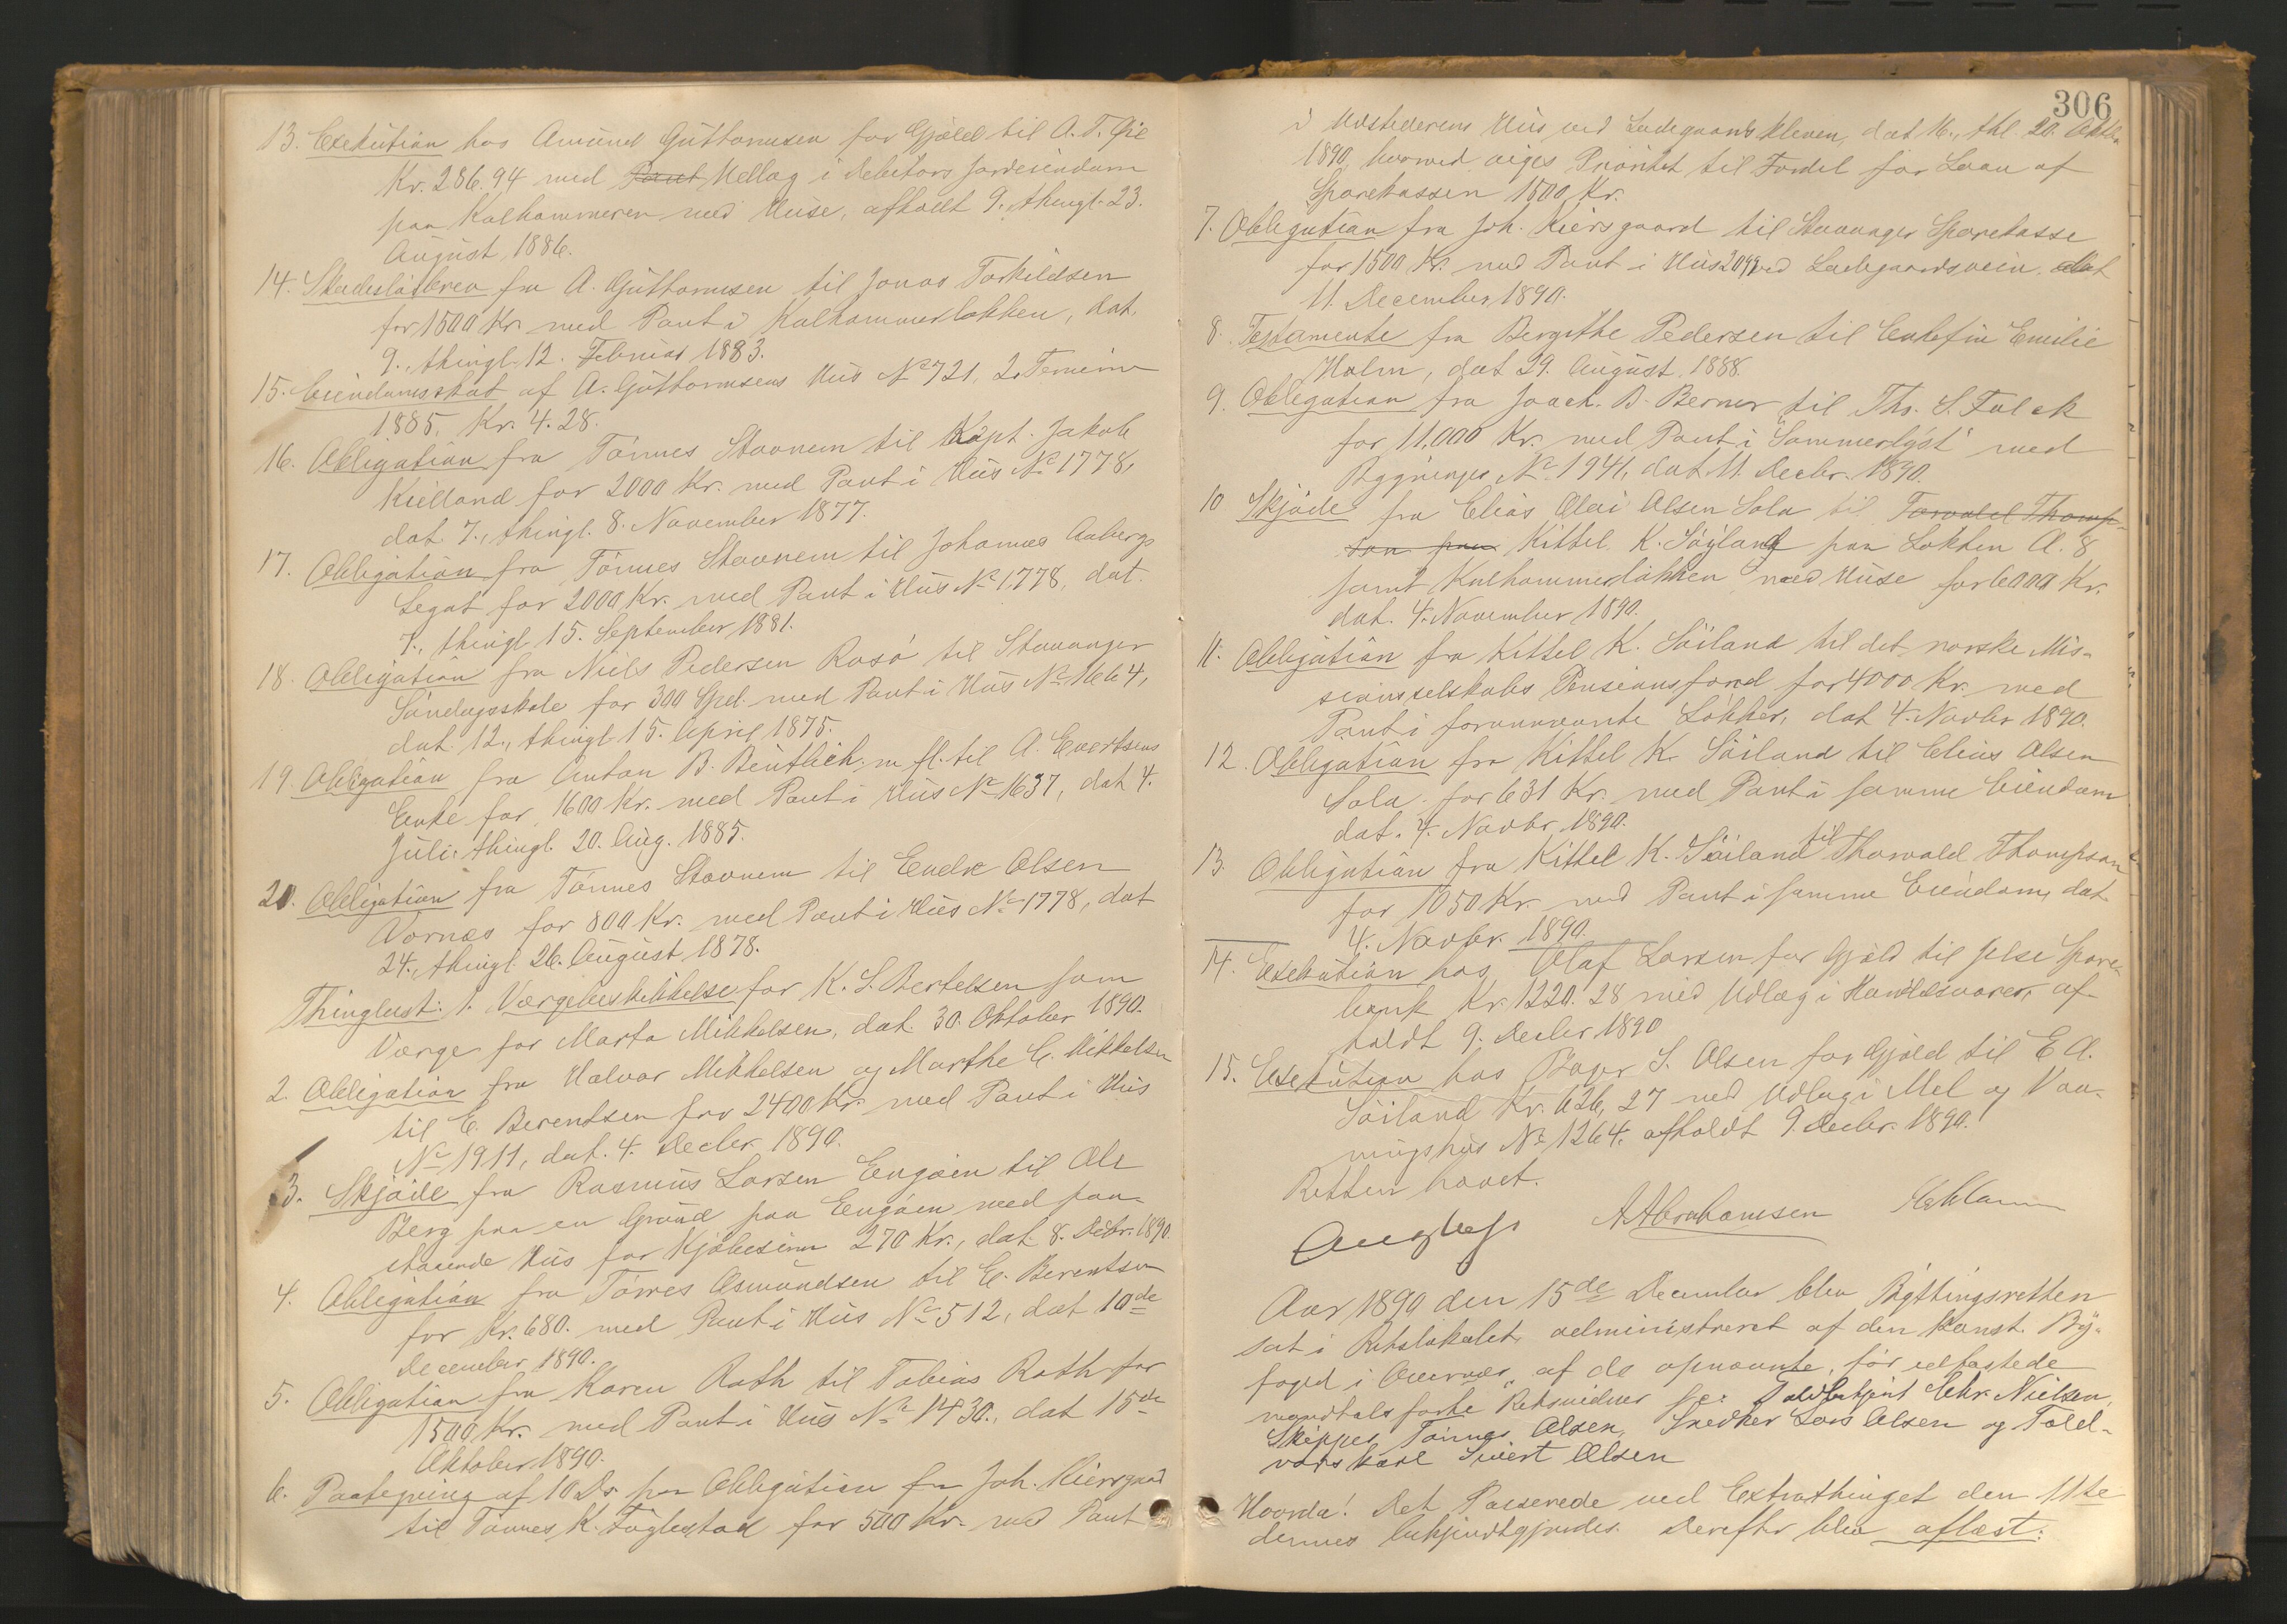 13. Exekution hos Amund Guttormsen for Gjæld til A. T. Øie
Kr. 286.94 med Pant Udlæg i Debitors Jordeiendom
paa Kalhammeren med Huse, afholdt 9. thingl. 23.
August 1886.
14. Skadesløsbrev fra A. Guttormsen til Jonas Torkildsen
for 1500 Kr. med Pant i Kalhammerløkken, dat.
9., thingl. 12. Februar 1883.
15. Eiendomsskat af A. Guttormsens Hus No 721, 2. Termin
1885, Kr. 4.28.
16. Obligation fra Tönnes Stavnem til Kapt. Jakob
Kielland for 2000 Kr. med Pant i Hus No 1778,
dat. 7., thingl. 8. November 1877.
17. Obligation fra Tönnes Stavnem til Johannes Aabergs
Legat for 2000 Kr. med Pant i Hus No 1778, dat.
7., thingl. 15. September 1881.
18. Obligation fra Niels Pedersen Rosö til Stavanger
Söndagsskole for 300 Spd. med Pant i Hus No 1664,
dat. 12., thingl. 15. April 1875.
19. Obligation fra Anton B. Beutlich m. fl. til A. Evertsens
Enke for 1600 Kr. med Pant i Hus No 1637, dat 4.
Juli. thingl. 20. Aug. 1885.
20. Obligation fra Tönnes Stavnem til Endre Olsen
Vornæs for 800 Kr. med Pant i Hus No 1778, dat
24., thingl. 26. August 1878.
Thinglæst: 1. Værgebeskikkelse for K. S. Bertelsen som
Værge for Marta Mikkelsen, dat. 30. Oktober 1890.
2. Obligation fra Halvor Mikkelsen og Marthe E. Mikkelsen
til E. Berentsen for 2400 Kr. med Pant i Hus
No 1911, dat. 4. Decbr. 1890.
3. Skjöde fra Rasmus Larsen Engöen til Ole
Berg paa en Grund paa Engöen med paa-
staaende Hus for Kjöbesum 270 Kr., dat. 8. Debr. 1890.
4. Obligation fra Törres Osmundsen til E. Berentsen
for Kr. 680. med Pant i Hus No 512, dat 10de
December 1890.
5. Obligation fra Karen Roth til Tobias Roth for
1500 Kr. med Pant i Hus No 1430., dat 15de
Oktober 1890.
6. Paategning af 10 Ds. paa Obligation fra Joh. Kiersgaard
til Tönnes K. Fuglestad for 500 Kr. med Pant
306
i Udstederens Hus ved Ladegaards Kleven, dat 16., thl. 20. Oktbr.
1890, hvorved viges Prioritet til Fordel for Laan af
Sparekassen 1500 Kr.
7. Obligation fra Joh. Kiersgaard til Stavanger Sparekasse
for 1500 Kr. med Pant i Hus 2049 ved Ladegaardsvein. dat
11. December 1890.
8. Testamente fra Bergithe Pedersen til Enkefru Emilie
Holm, dat 29. August 1888.
9. Obligation fra Joach. B. Berner til Ths. S. Falck
for 11,000 Kr. med Pant i "Sommerlyst" med
Bygninger No 1941, dat. 11. Decbr. 1890.
10 Skjöde fra Elias Olai Olsen Sola til Torvald Thomp-
son paa Kittel K. Söyland paa Løkken A. 8
samt Kalhammerløkken med Huse for 6000 Kr.
dat. 4. November 1890.
11. Obligation fra Kittel K. Söiland til det norske Mis-
sionsselskabs Pensionsfond for 4000 Kr. med
Pant i forannævnte Løkker, dat 4. Novbr. 1890.
12. Obligation fra Kittel K. Söiland til Elias Olsen
Sola for 631 Kr. med Pant i samme Eiendom
dat. 4. Novbr. 1890.
13. Obligation fra Kittel K. Söiland til Thorvald Thompson
for 1050 Kr. med Pant i samme Eiendom, dat.
4. Novbr. 1890.
14. Exekution hos Olaf Larsen for Gjæld til Jelse Spare-
bank Kr. 1220.28 med Udlæg i Handelsvarer, af-
holdt 9. Decbr. 1890
15. Exekution hos Bager S. Olsen for Gjæld til E. A.
Söiland Kr. 626,27 med Udlæg i Mel og Vaa-
ningshus No 1264, afholdt 9. Decbr. 1890.
Retten hævet.
A. Abrahamsen
Aar 1890 den 15de December blev Bythingsretten
sat i Retslokalet administreret af den konst. By-
foged i Overvær af de opnævnte, før edfæstede
mandtalsførte Retsvidner se: Toldbetjent Chr. Nielsen,
Skipper Tönnes Olsen, Snedker Lars Olsen og Told-
vors karl Sivert Olsen
Hvorda! Det Passerede ved Extrathinget den 11te
dennes bekjendtgjordes. Derefter blev aflæst: